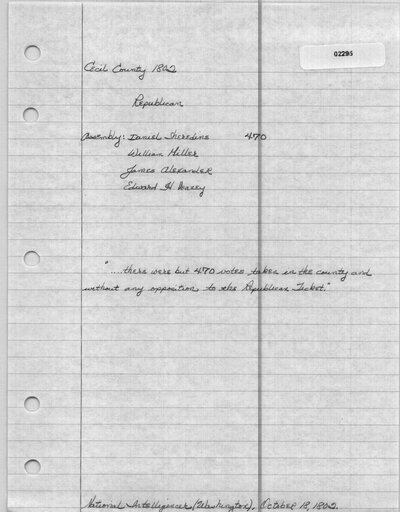 02295
Cecil County 1802
Republican
Assembly: Daniel Sheredine 470
William Miller
James Alexander
Edward H Veazey
"....there were but 470 votes taken in the county and
without any opposition to the Republican Ticket."
National Intelligencer (Washington), October 18, 1802.